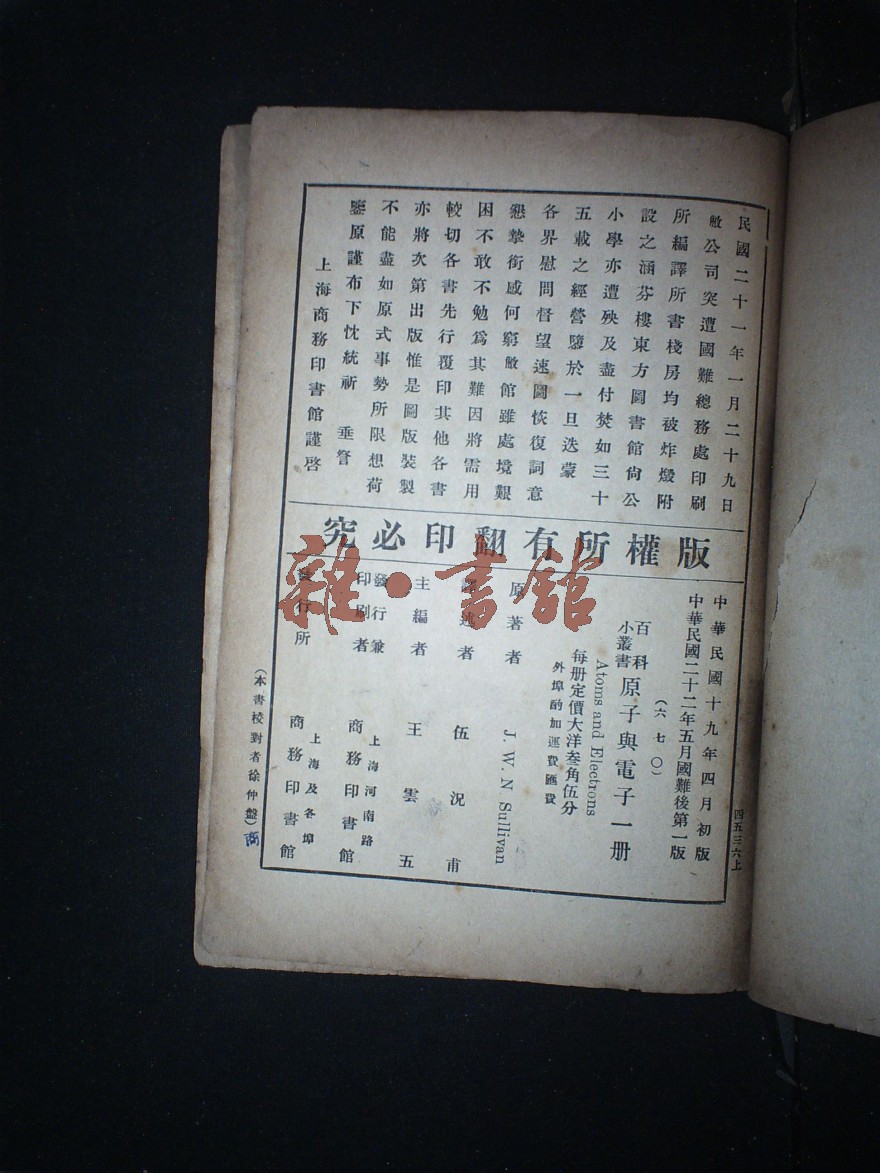 民國二十一年一月二十九日
敝公司突遭國難總務處印刷
所編譯所書棧房均被炸燬附
設之涵芬樓東方圖書館尙公
小學亦遭殃及盡付焚如三十
五載之經營隳於一旦迭蒙
各界慰問督望速圖恢復詞意
懇摯銜感何窮敝館雖處境艱
困不敢不勉爲其難因將需用
較切各書先行覆印其他各書
亦將次第出版惟是圖版裝製
不能盡如原式事勢所限想荷
鑒原謹布下忱統祈 垂詧
上海商務印書館謹啓
版權所有翻印必究
四五三六上
中華民國十九年四月初版
中華民國二十二年五月國難後第一版
(六七〇)
百科小叢書 原子與電子一册
Atoms and Electrons
每册定價大洋叁角伍分
外埠酌加運費匯費
原著者 J. W. N Sullivan
譯述者 伍況甫
主編者 王雲五
發行兼印刷者 上海河南路 商務印書館
發行所 上海及各埠 商務印書館
(本書校對者徐仲盤)
商
雜·書館